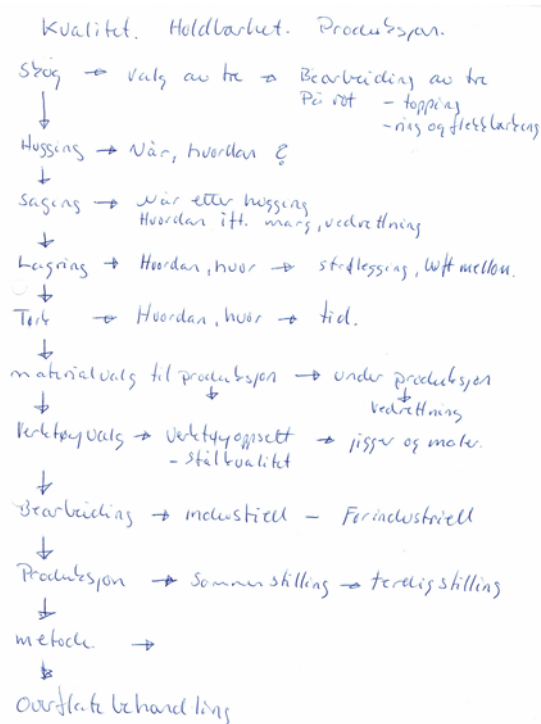 Kvalitet. Holdbarhet. Produksjon.
Skog → valg av tre → Bearbeiding av tre
På rot - topping
- ring og flekkbarking
Hogging → Når, hvordan ?
Saging → Når etter hogging
Hvordan ift. marg, vedrettning
Lagring → Hvordan, hvor → strølegging, luft mellom.
Tørk → Hvordan, hvor → tid.
materialvalg til produksjon → under produksjon
vedrettning
Verktøyvalg → verktøyoppsett → jigger og maler.
- stålkvalitet
Bearbeiding → industriell - Førindustriell
Produksjon → Sammenstilling → ferdigstilling
metode. →
Overflatebehandling